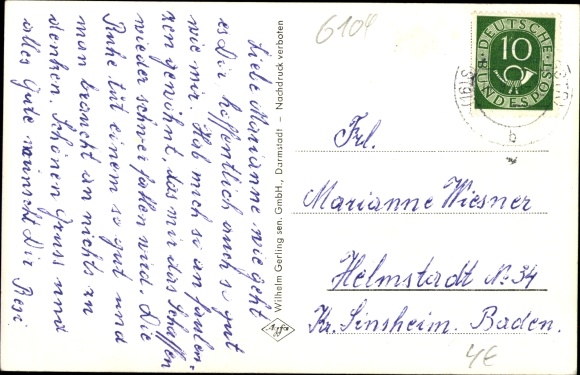 Liebe Marianne wie geht
es Dir hoffentlich auch so gut
wie mir. Hab mich so an faulen-
zen gewöhnt, das mir das Schaffen
wieder schwer fallen wird. Die
Ruhe tut einem so gut und
man braucht an nichts zu
denken. Schönen Gruss und
alles Gute wünscht Dir Resi
Wilhelm Gerling sen. GmbH., Darmstadt – Nachdruck verboten
Agfa
6104
DEUTSCHE
BUNDESPOST
10
(16)
b
Frl.
Marianne Wiesner
Helmstadt No 34
Kr. Sinsheim. Baden.
4€